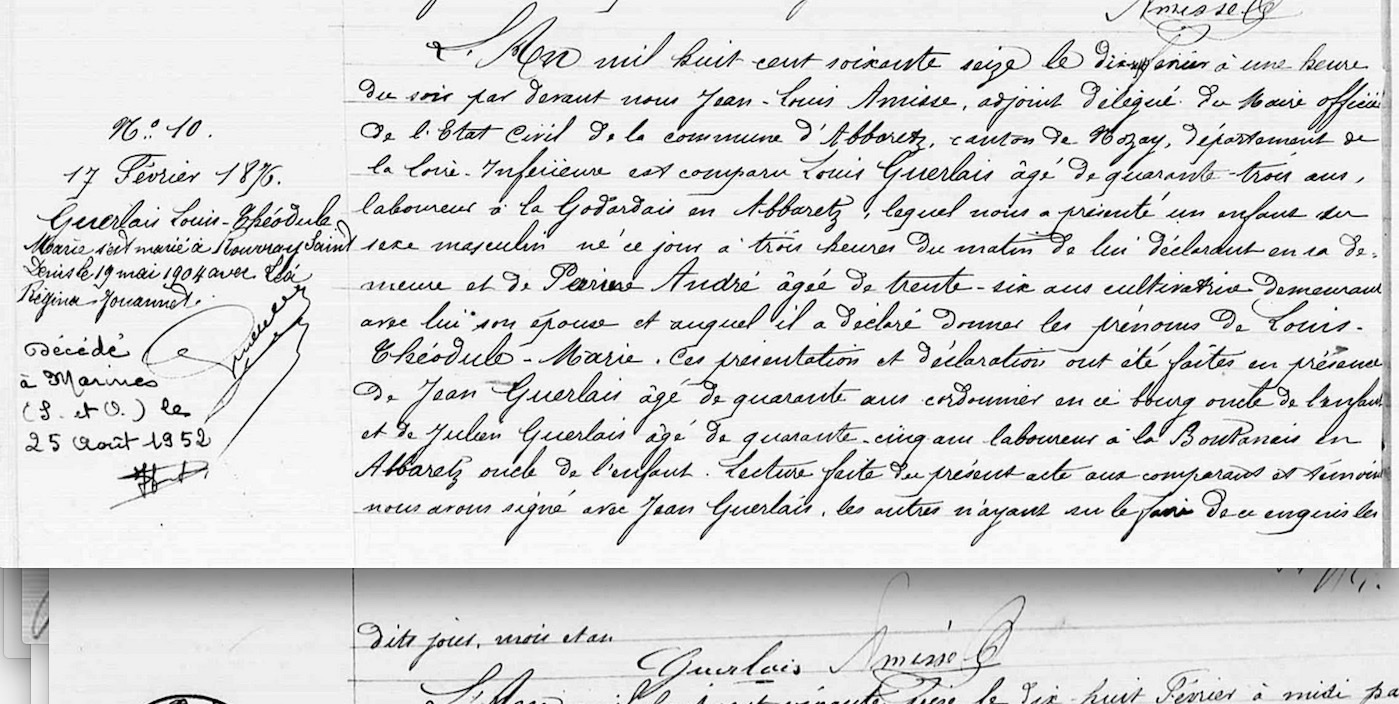 Amisse
L'An mil huit cent soixante seize le dix février à une heure
du soir par devant nous Jean-Louis Amisse, adjoint délégué du Maire officier
de l'Etat Civil de la commune d'Abbaretz, canton de Nozay, département de
la Loire-Inférieure est comparu Louis Guerlais âgé de quarante-trois ans,
laboureur à la Godardais en Abbaretz, lequel nous a présenté un enfant du
sexe masculin né ce jour à trois heures du matin de lui déclarant en sa de-
meure et de Perrine André âgée de trente-six ans cultivatrice demeurant
avec lui son épouse et auquel il a déclaré donner les prénoms de Louis-
Théodule-Marie. Ces présentation et déclaration ont été faites en présence
de Jean Guerlais âgé de quarante ans cordonnier en ce bourg oncle de l'enfant
et de Julien Guerlais âgé de quarante-cinq ans laboureur à la en
Abbaretz oncle de l'enfant. Lecture faite du présent acte aux comparant et témoins
nous avons signé avec Jean Guerlais, les autres n'ayant su le faire de ce enquis les
N.° 10.
17 Février 1876.
Guerlais Louis-Théodule
Marie s'est marié à Rouvray Saint
Denis le 19 mai 1904 avec Léa
Régina Jouannet.
Décédé
à Marines
(S. et O.) le
25 Août 1952
dits jour, mois et an
Guerlais Amisse
L'An mil huit cent soixante seize le dix-huit Février à midi pa